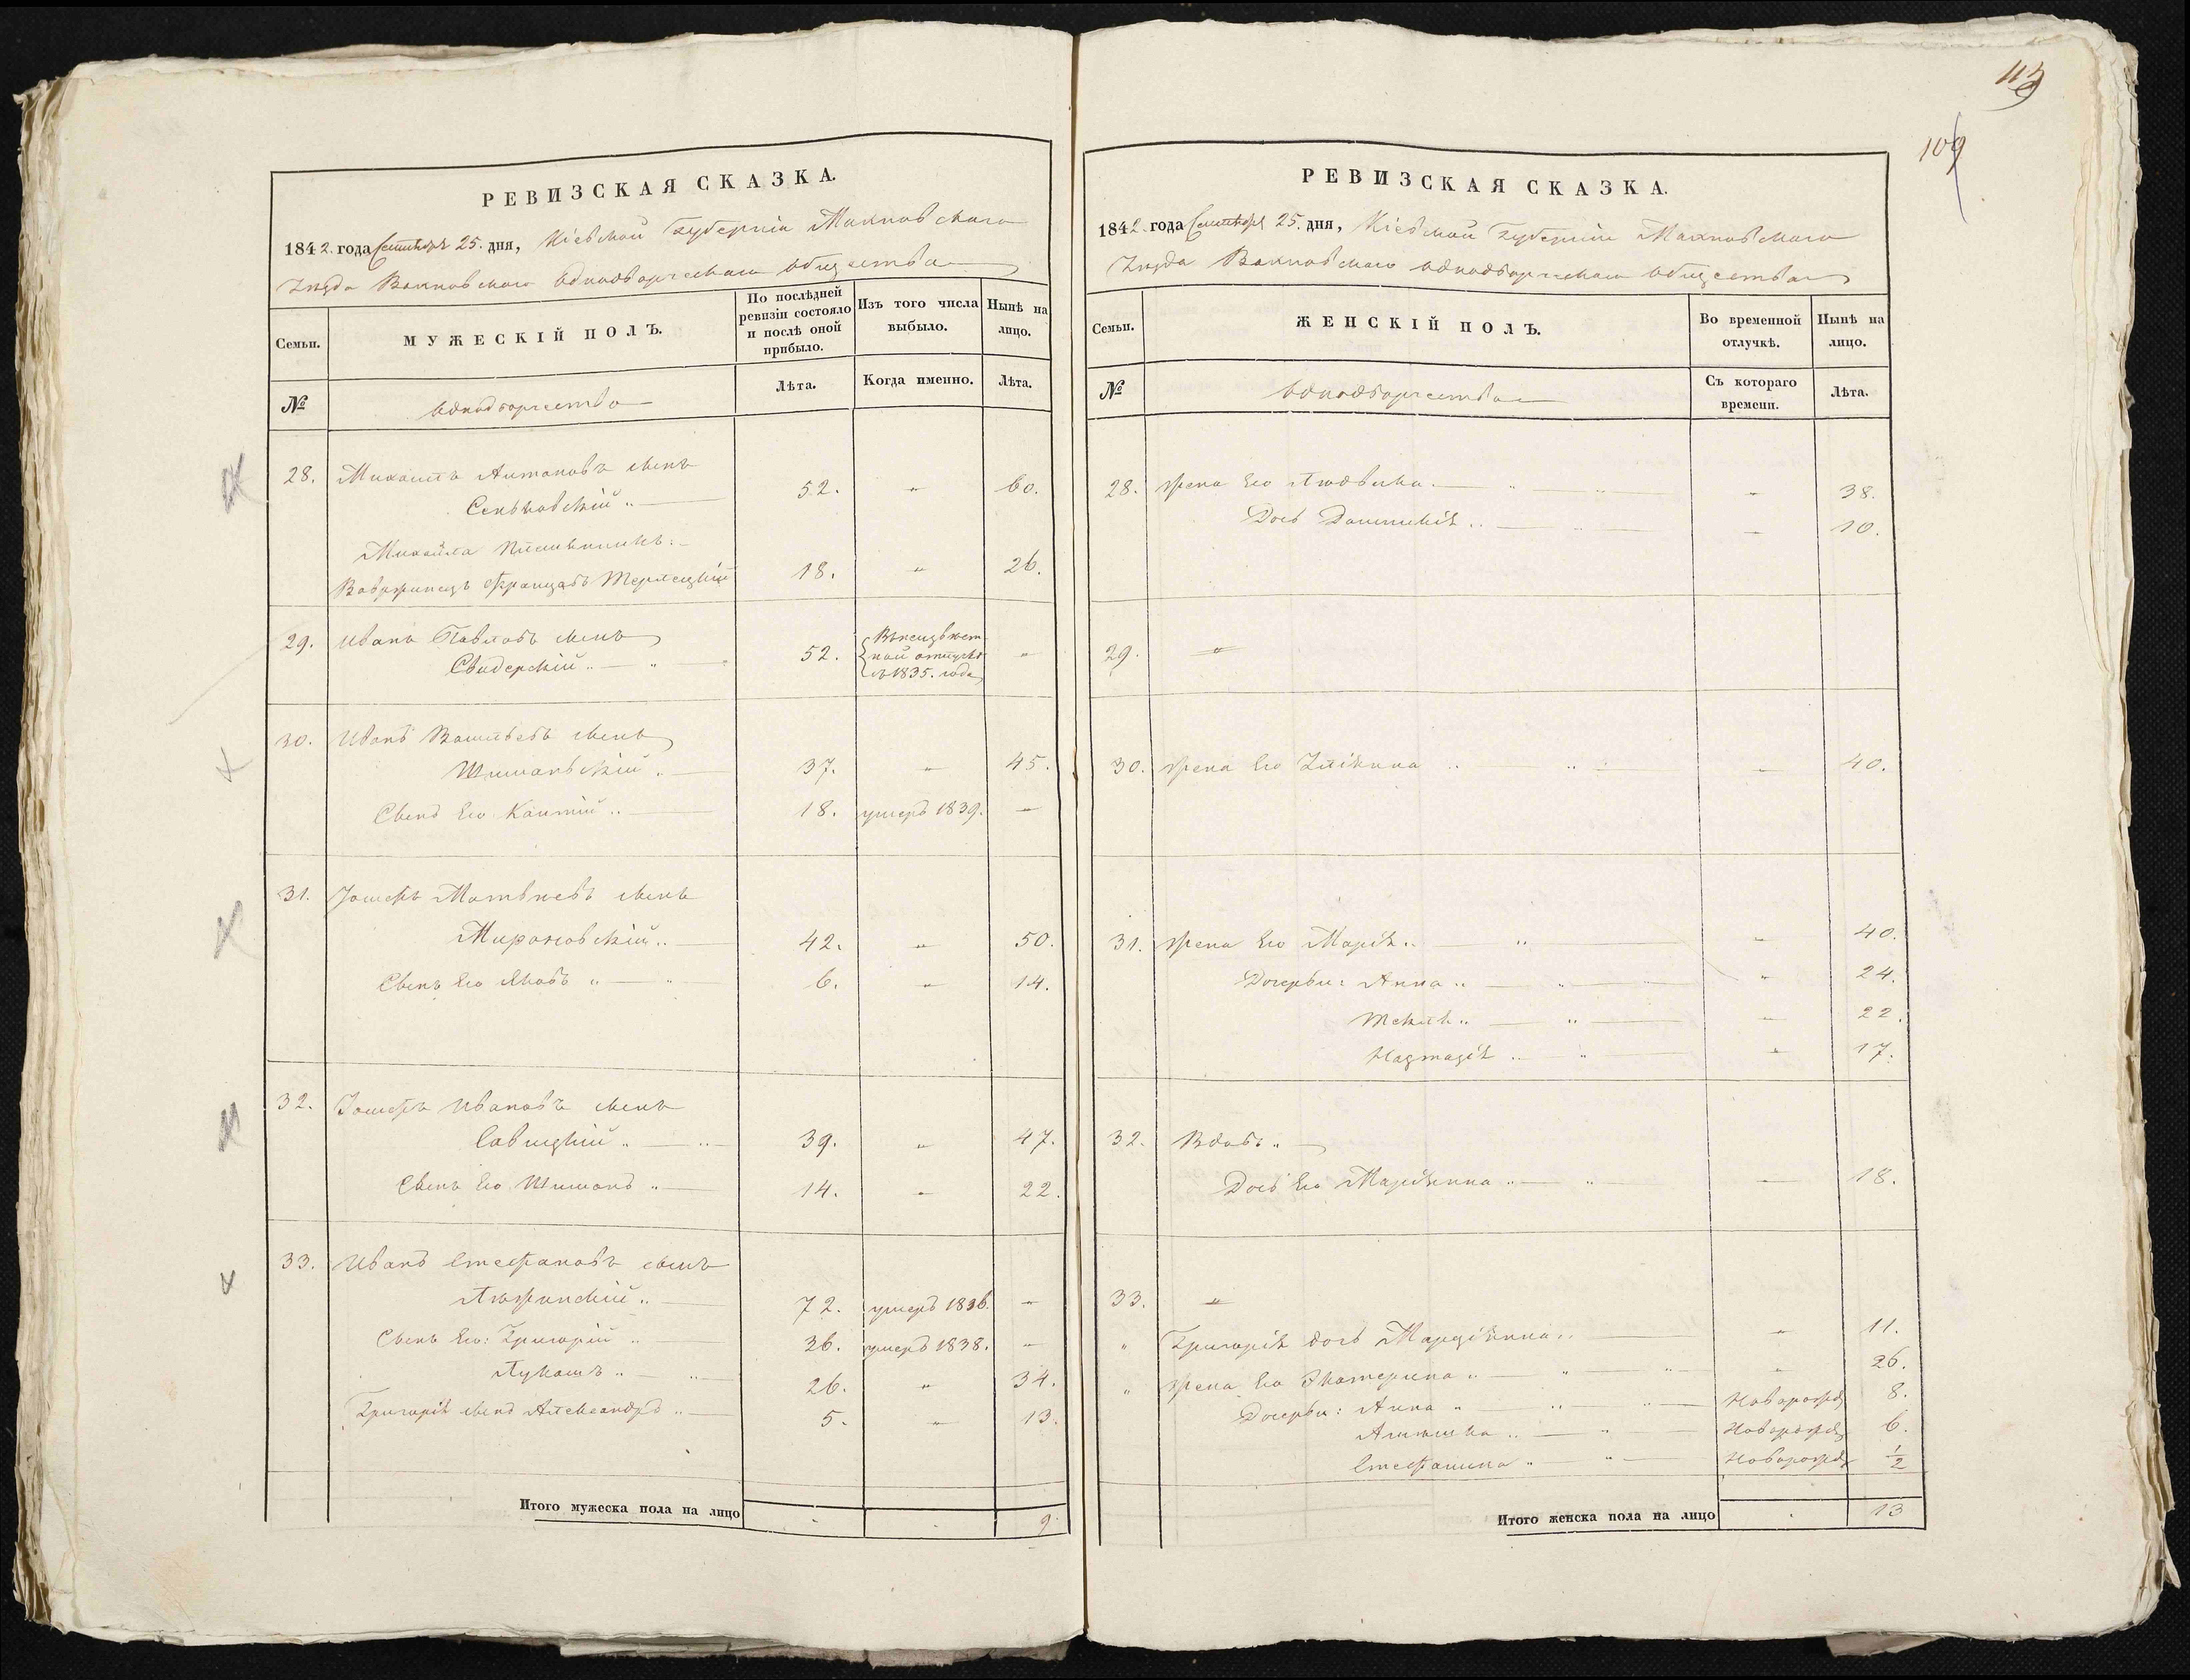 113
109
РЕВИЗСКАЯ СКАЗКА.
1842. года Сентября 25. дня, Кіевской Губерніи Махновскаго
Уезда Вахновскаго Однодворческаго Общества
Семьи.
МУЖЕСКІЙ ПОЛЪ.
По послѣдней ревизіи состояло и послѣ оной прибыло.
Изъ того числа выбыло.
Нынѣ на лицо.
№
Однодворчества
Лѣта.
Когда именно.
Лѣта.
28. Михаилъ Антоновъ сынъ
Сеньковскій 52. „ 60.
Михайла
Вавржинецъ Францовъ Терлецкій 18. „ 26.
29. Иванъ Павловъ сынъ
Свидерскій 52. „
отлучке
съ 1835. года
30. Иванъ Васильевъ сынъ
Шимановскій 37. „ 45.
Сынъ Его 18. умеръ 1839. „
31. Іосифъ Матвѣевъ сынъ
42. „ 50.
Сынъ Его Яковъ 6. „ 14.
32. Іосифъ Ивановъ сынъ
Савицкій 39. „ 47.
Сынъ Его Шимонъ 14. „ 22.
33. Иванъ Стефановъ сынъ
72. умеръ 1836. „
Сынъ Его: Григорій 36. умеръ 1838. „
Лукашъ 26. „ 34.
Григорія сынъ Александръ 5. „ 13.
Итого мужеска пола на лицо 9
РЕВИЗСКАЯ СКАЗКА.
1842. года Сентября 25. дня, Кіевской Губерніи Махновскаго
Уезда Вахновскаго Однодворческаго Общества
Семьи.
ЖЕНСКІЙ ПОЛЪ.
Во временной отлучкѣ.
Нынѣ на лицо.
№
Однодворчества
Съ котораго времени.
Лѣта.
28. Жена Его Людвика „ 38.
Дочь „ 10.
29. „
30. Жена Его Уліянна „ 40.
31. Жена Его Марія „ 40.
Дочерьи: Анна „ 24.
Текля „ 22.
Настазія „ 17.
32. Вдовъ
Дочь Его Маріянна „ 18.
33. „
„ Григорія дочь Марціянна „ 11.
„ Жена Его Екатерина „ 26.
Дочерьи: Анна Новорожд 8.
Новорожд 6.
Новорожд 1/2
Итого женска пола на лицо 13